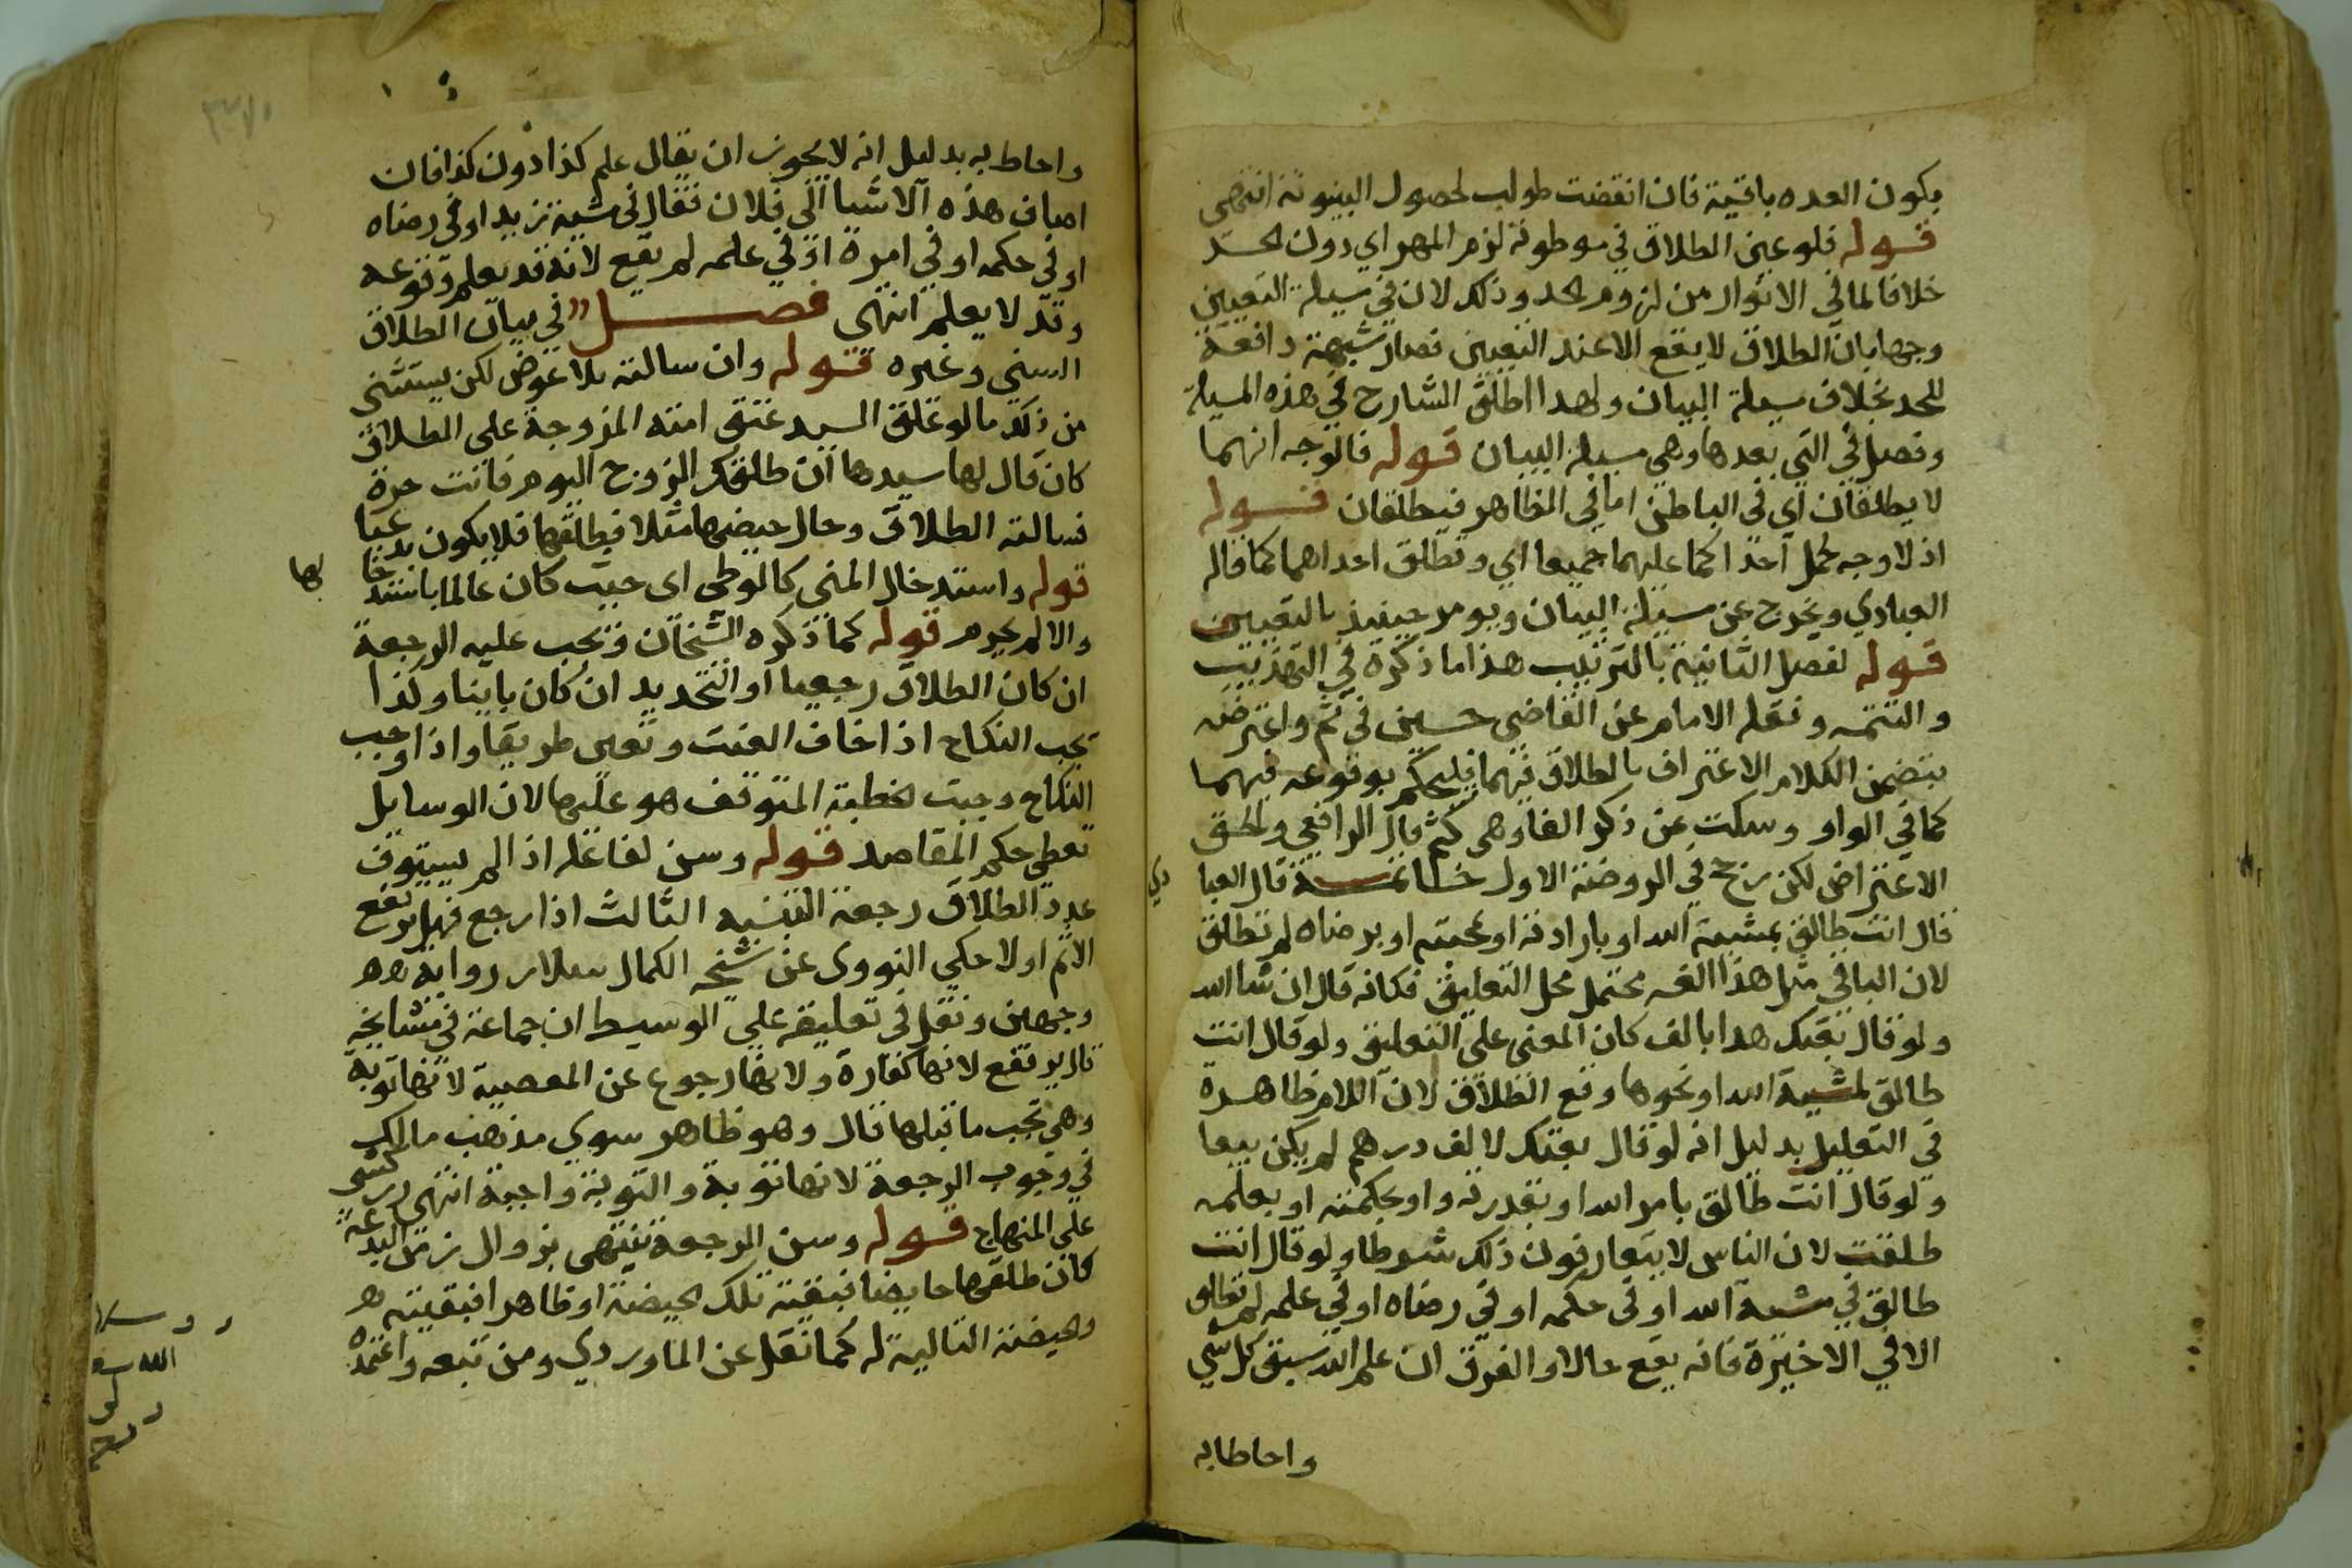 يكون العده باقية فان انقضت طولب لحصول البينونة انتهى
قوله فلو عين الطلاق في موطوة لزم المهر اي دون الحد
خلافا لما في الانوار من لزوم الحد وذلك لان في سيلة التعيين
وجها بان الطلاق لا يقع الا عند التعيين فصار شبهة دافعة
للحد بخلاف سيلة البيان ولهدا اطلق الشارح في هذه المسيلة
وفصل في التي بعدها وهي مسيلة البيان قوله فالوجه انهما
لا يطلقان اي في الباطن اما في الظاهر فيطلقان قوله
اذ لا وجه لحمل احدا كما عليهما جميعا اي وتطلق احداهما كما قاله
العبادي ويخرج عن سيلة البيان ويومر حينيذ بالتعيين
قوله لفصل الثانية بالترتيب هذا ما ذكره في التهذيب
والتتمه ونقله الامام عن القاضي حسين في ثم واعترضه
بتضمن الكلام الاعتراف بالطلاق فيهما فليحكم بوقوعه فيهما
كما في الواو وسكت عن ذكر الفا وهي كثم قال الرافعي والحق
الاعتراض لكن رجح في الروضة الاول خاتمة قال العبا
دي
قال انت طالق بمشية الله او بارادته او محبته او برضاه لم تطلق
لان البا في مثل هذا محتمل محل التعليق فكانه قال ان شا الله
ولو قال بعتك هدا بالف كان المعنى على التعليق ولو قال انت
طالق لمشية الله او نحوها وقع الطلاق لان اللام ظاهرة
في التعليل بدليل انه لو قال بعتك لالف درهم لم يكن بيعا
ولو قال انت طالق بامر الله او بقدرته او بحكمته او بعلمه
طلقت لان الناس لا يتعارفون ذلك شرطا ولو قال انت
طالق في مشية الله او في حكمه او في رضاه او في علمه لم تطلق
الا في الاخيرة فانه يقع حالا والفرق ان علم الله سبق كل شي
واحاط به
واحاط به بدليل انه لا يجوز ان يقال علم كذا دون كذا فان
اضاف هذه الاشيا الى فلان فقال في مشية زيد او في رضاه
او في حكمه او في امره او في علمه لم يقع لانه قد يعلم وقوعه
وقد لا يعلم انتهى فصل في بيان الطلاق
السني وغيره قوله وان سالته بلا عوض لكن يستثنى
من ذلك ما لو علق السيد عتق امته المزوجة على الطلاق
كان قال لها سيدها ان طلقك الزوج اليوم فانت حرة
فسالته الطلاق وحال حيضها مثلا فيطلقها فلا يكون بدعيا
قوله واستدخال المني كالوطى اى حيث كان عالما باستدخا
لها
والا لم يحرم قوله كما ذكره الشيخان وتجب عليه الرجعة
ان كان الطلاق رجعيا او التجديد ان كان باينا وكذا
تجب النكاح اذا خاف العنت وتعين طريقا واذا وجب
النكاح وجبت الخطبة المتوقف هو عليها لان الوسايل
تعطى حكم المقاصد قوله وسن لفاعله اذا لم يستوف
عدد الطلاق رجعة التنبيه الثالث اذا رجع فهل يرتفع
الاثم اولا حكي النووى عن شيخه الكمال سلار روايه
وجهين ونقل في تعليقه على الوسيط ان جماعة في مشايخه
قال يرتفع لانها كفارة ولانها رجوع عن المعصية لانها توبة
وهي تجب ما قبلها قال وهو ظاهر سوى مذهب مالك
في وجوب الرجعة لانها توبة والتوبة واجبة انتهى زركشى
على المنهاج قوله وسن الرجعة ينتهى بزوال زمن البدعة
كان طلقها حايضا فبقية تلك الحيضة او طاهرا فبقيته
والحيضة التالية له كما نقل عن الماوردي ومن تبعه واعتمده